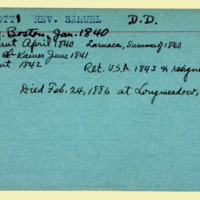 OTT, REV. SAMUEL D.D.
Boston, Jan. 1840
rut April 1840 Larnaca, Summer 1840
el Kamer June 1841
ut 1842 Ret. U.S.A 1843 & resigne
Died Feb. 24, 1886 at Longmeadow,